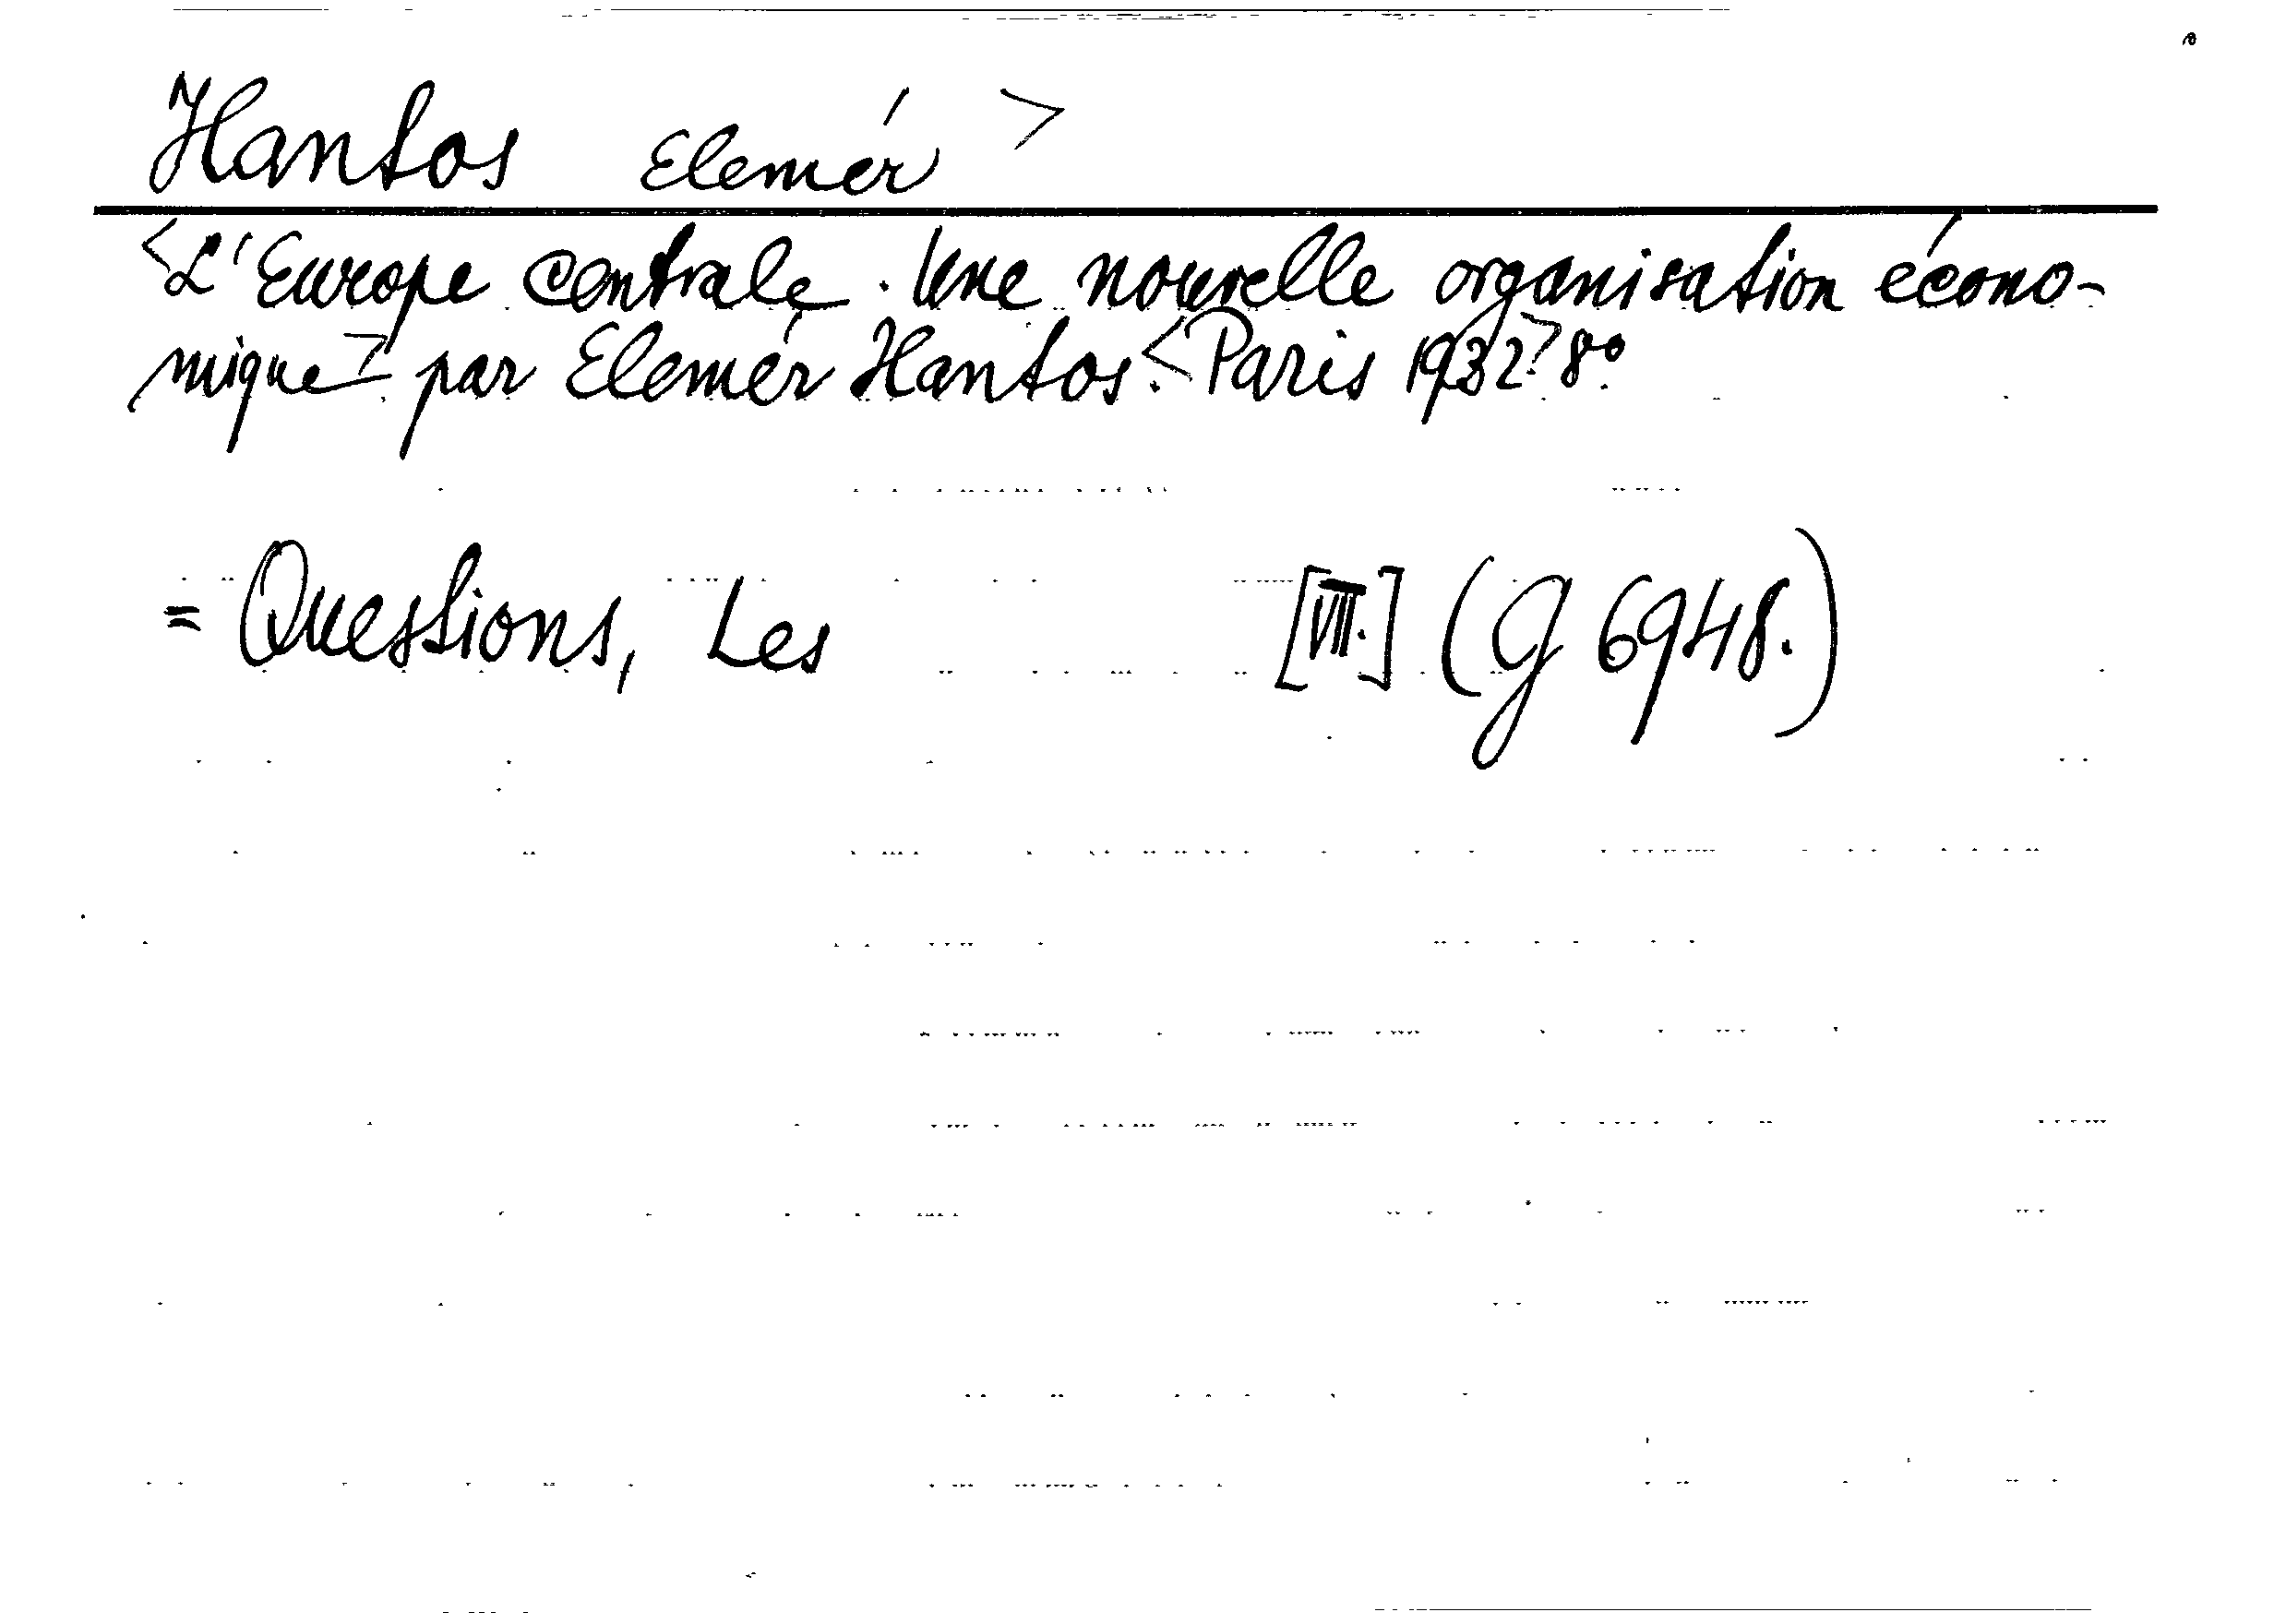 Hantos Elemér >
<L'Europe centrale. Une nouvelle organisation écono-
mique> par Elemér Hantos. <Paris 1932> 8°.
= Questions, Les [VII.] (G 6948.)